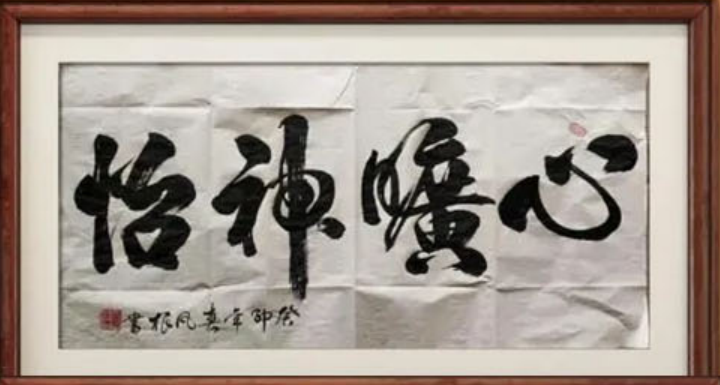 心曠神怡
癸卯年春風根書